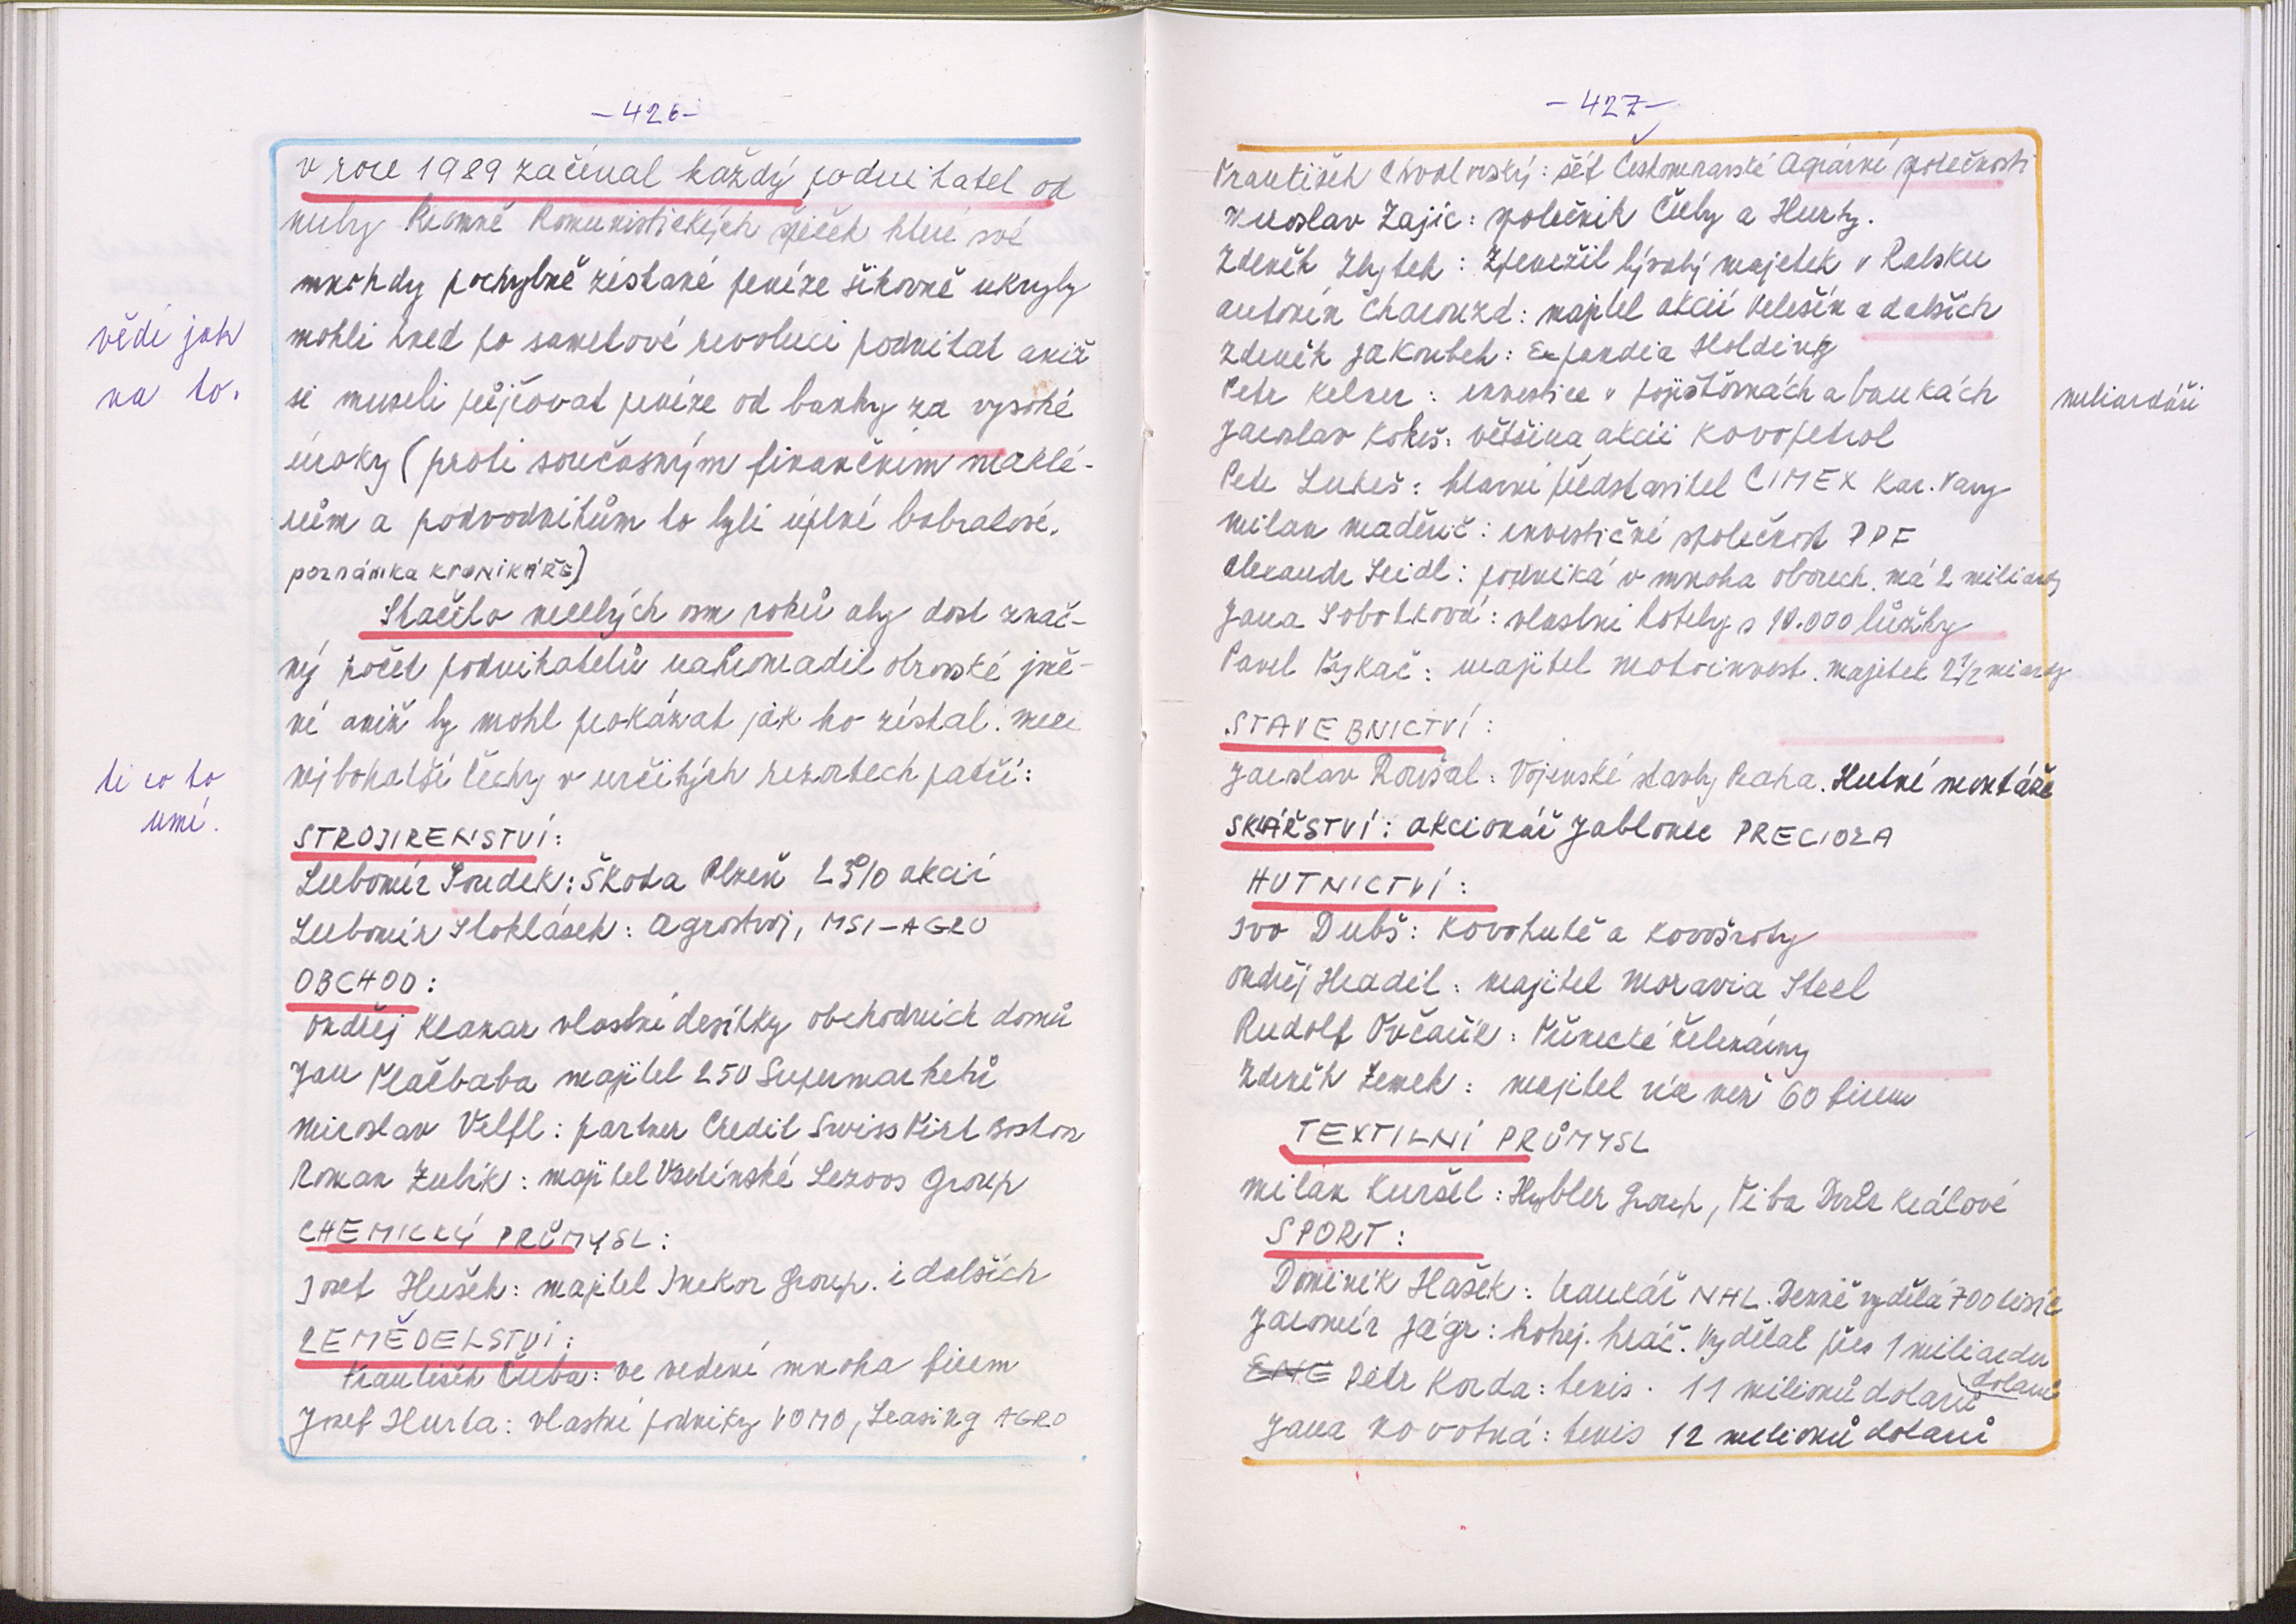 -426-
v roce 1989 začínal každý podnikatel od
nuly kromě komunistických špiček které své
mnohdy pochybně získané peníze šikovně ukryly
vědí jak
na to.
mohli hned po sametové revoluci podnikat aniž
si museli půjčovat peníze od banky za vysoké
úroky (proti současným finančním maklé-
řům a podvodníkům to byli úplní bobralové.
poznámka KRONIKÁŘE)
Stačilo necelých osm roků aby dost znač-
ný počet podnikatelů nahromadil obrovské jmě-
ní aniž by mohl prokázat jak ho získal. Mezi
ti co to
umí.
nejbohatší čechy v určitých rezortech patří:
STROJIRENSTVÍ:
Lubomír Soudek: Škoda Plzeň akcií
Lubomír Stoklásek: Agrostroj, MSI-AGRO
OBCHOD:
Ondřej Klanar vlastní desítky obchodních domů
Jan Plačbaba majitel 250 Supermarketů
Miroslav Velfl: partner Credit Swiss First Boston
Roman Zubík: majitel Vsetínské Lezoos Group
CHEMICKÝ PRŮMYSL:
Josef Hušek: majitel Inekor Group. i dalších
ZEMĚDELSTVÍ:
František Čuba: ve vedení mnoha firem
Josef Hurta: vlastní podniky VOMO, Leasing AGRO
-427-
František Chvalovský: šéf Českomoravské Agrární společnosti
Miroslav Zajíc: společník Čuby a Hurty.
Zdeněk Zbytek: Zpeněžil bývalý majetek v Ralsku
Antonín Charouzd: majitel akcií Velešín a dalších
Zdeněk Jakoubek: Expandia Holding
Petr Kelner: investice v pojišťovnách a bankách
miliardáři
Jaroslav Kokeš: většina akcií Kovopetrol
Petr Lukeš: hlavní představitel CIMEX Kar. Vary
Milan Maděrič: investiční společnost PPF
Alexandr Seidl: podniká v mnoha oborech. má 2 miliardy
Jana Sobotková: vlastní hotely s 10.000 lůžky
Pavel Tykač: majitel Motoinvest. majetek 2 1/2 miardy
STAVEBNICTVÍ:
Jaroslav Roušal: Vojenské stavby Praha. Hutní montáže
SKLÁŘSTVÍ: akcionář Jablonec PRECIOZA
HUTNICTVÍ:
Ivo Dubš: Kovohutě a Kovošroty
Ondřej Hradil: majitel Moravia Steel
Rudolf Ovčačík: Třinecké železárny
Zdeněk Zemek: majitel více než 60 firem
TEXTILNÍ PRŮMYSL
Milan Kuršel: Hybler Group, Tiba Dvůr Králové
SPORT:
Dominik Hašek: brankář NHL. Denně vydělá 700 tisíc
Jaromír Jágr: hokej. hráč. Vydělal přes 1 miliardu
dolarů
Petr Korda: tenis. 11 milionů dolarů
Jana Novotná: tenis 12 milionů dolarů